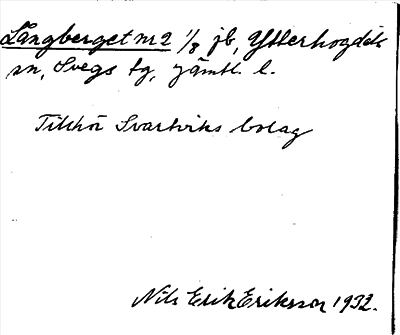 Långberget nr 2 1/8 jb, Ytterhogdals
sn, Svegs tg, Jämtl. l.
Tillhör Svartviks bolag
Nils Erik Eriksson 1932.